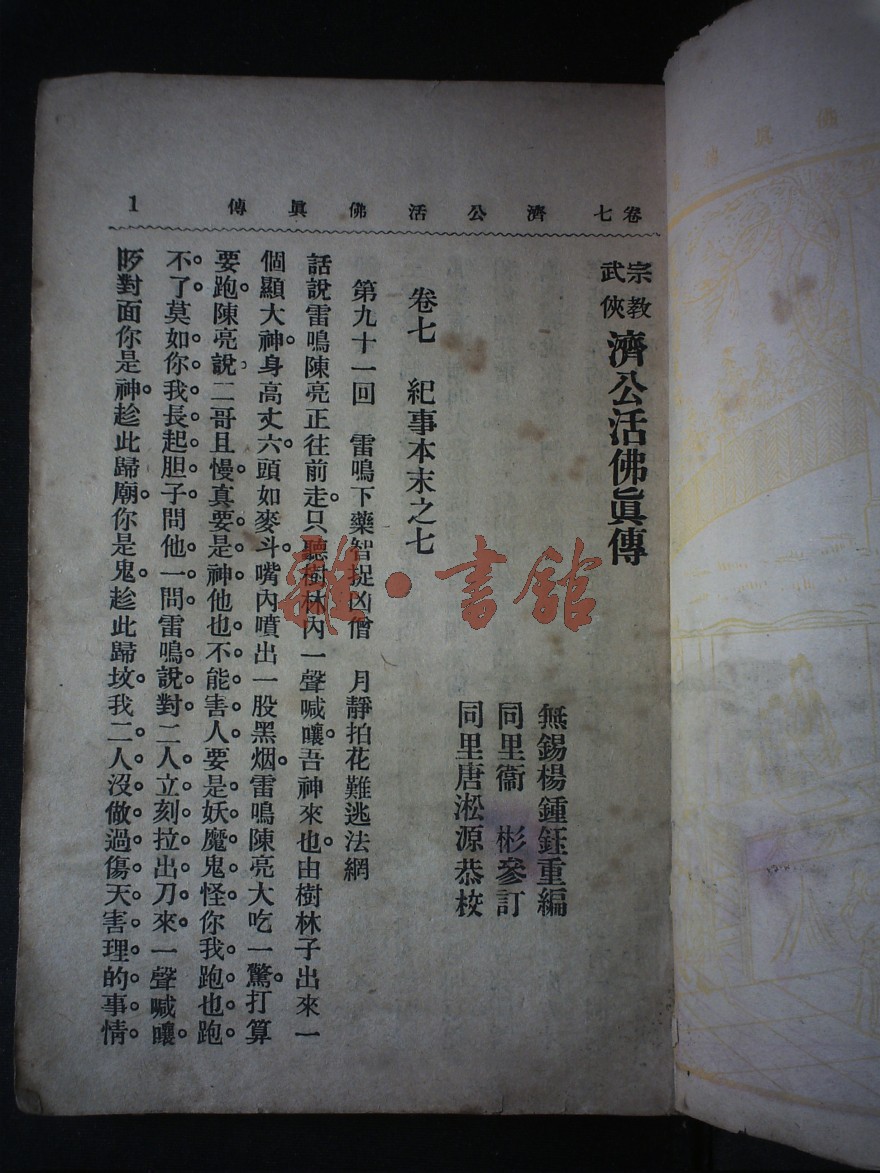 卷七 濟公活佛眞傳 1
宗教
武俠
濟公活佛眞傳
無錫楊鍾鈺重編
同里衞 彬參訂
同里唐淞源恭校
卷七 紀事本末之七
第九十一回 雷鳴下藥智捉凶僧 月靜拍花難逃法網
話說雷鳴陳亮正往前走。只聽樹林內一聲喊嚷。吾神來也。由樹林子出來一
個顯大神。身高丈六。頭如麥斗。嘴內噴出一股黑烟。雷鳴陳亮大吃一驚。打算
要跑。陳亮說。二哥且慢。真要是神。他也不能害人。要是妖魔鬼怪。你我跑也跑
不了。莫如你我長起胆子。問他一問。雷鳴說對。二人立刻拉出刀來。一聲喊嚷。
對面你是神。趁此歸廟。你是鬼。趁此歸坟。我二人沒做過傷天害理的事情。
雜·書館